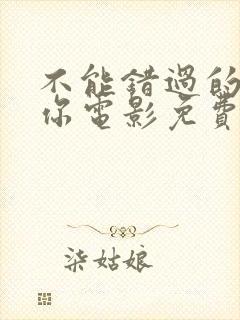 不能错過的
你電影免費
柒姑娘